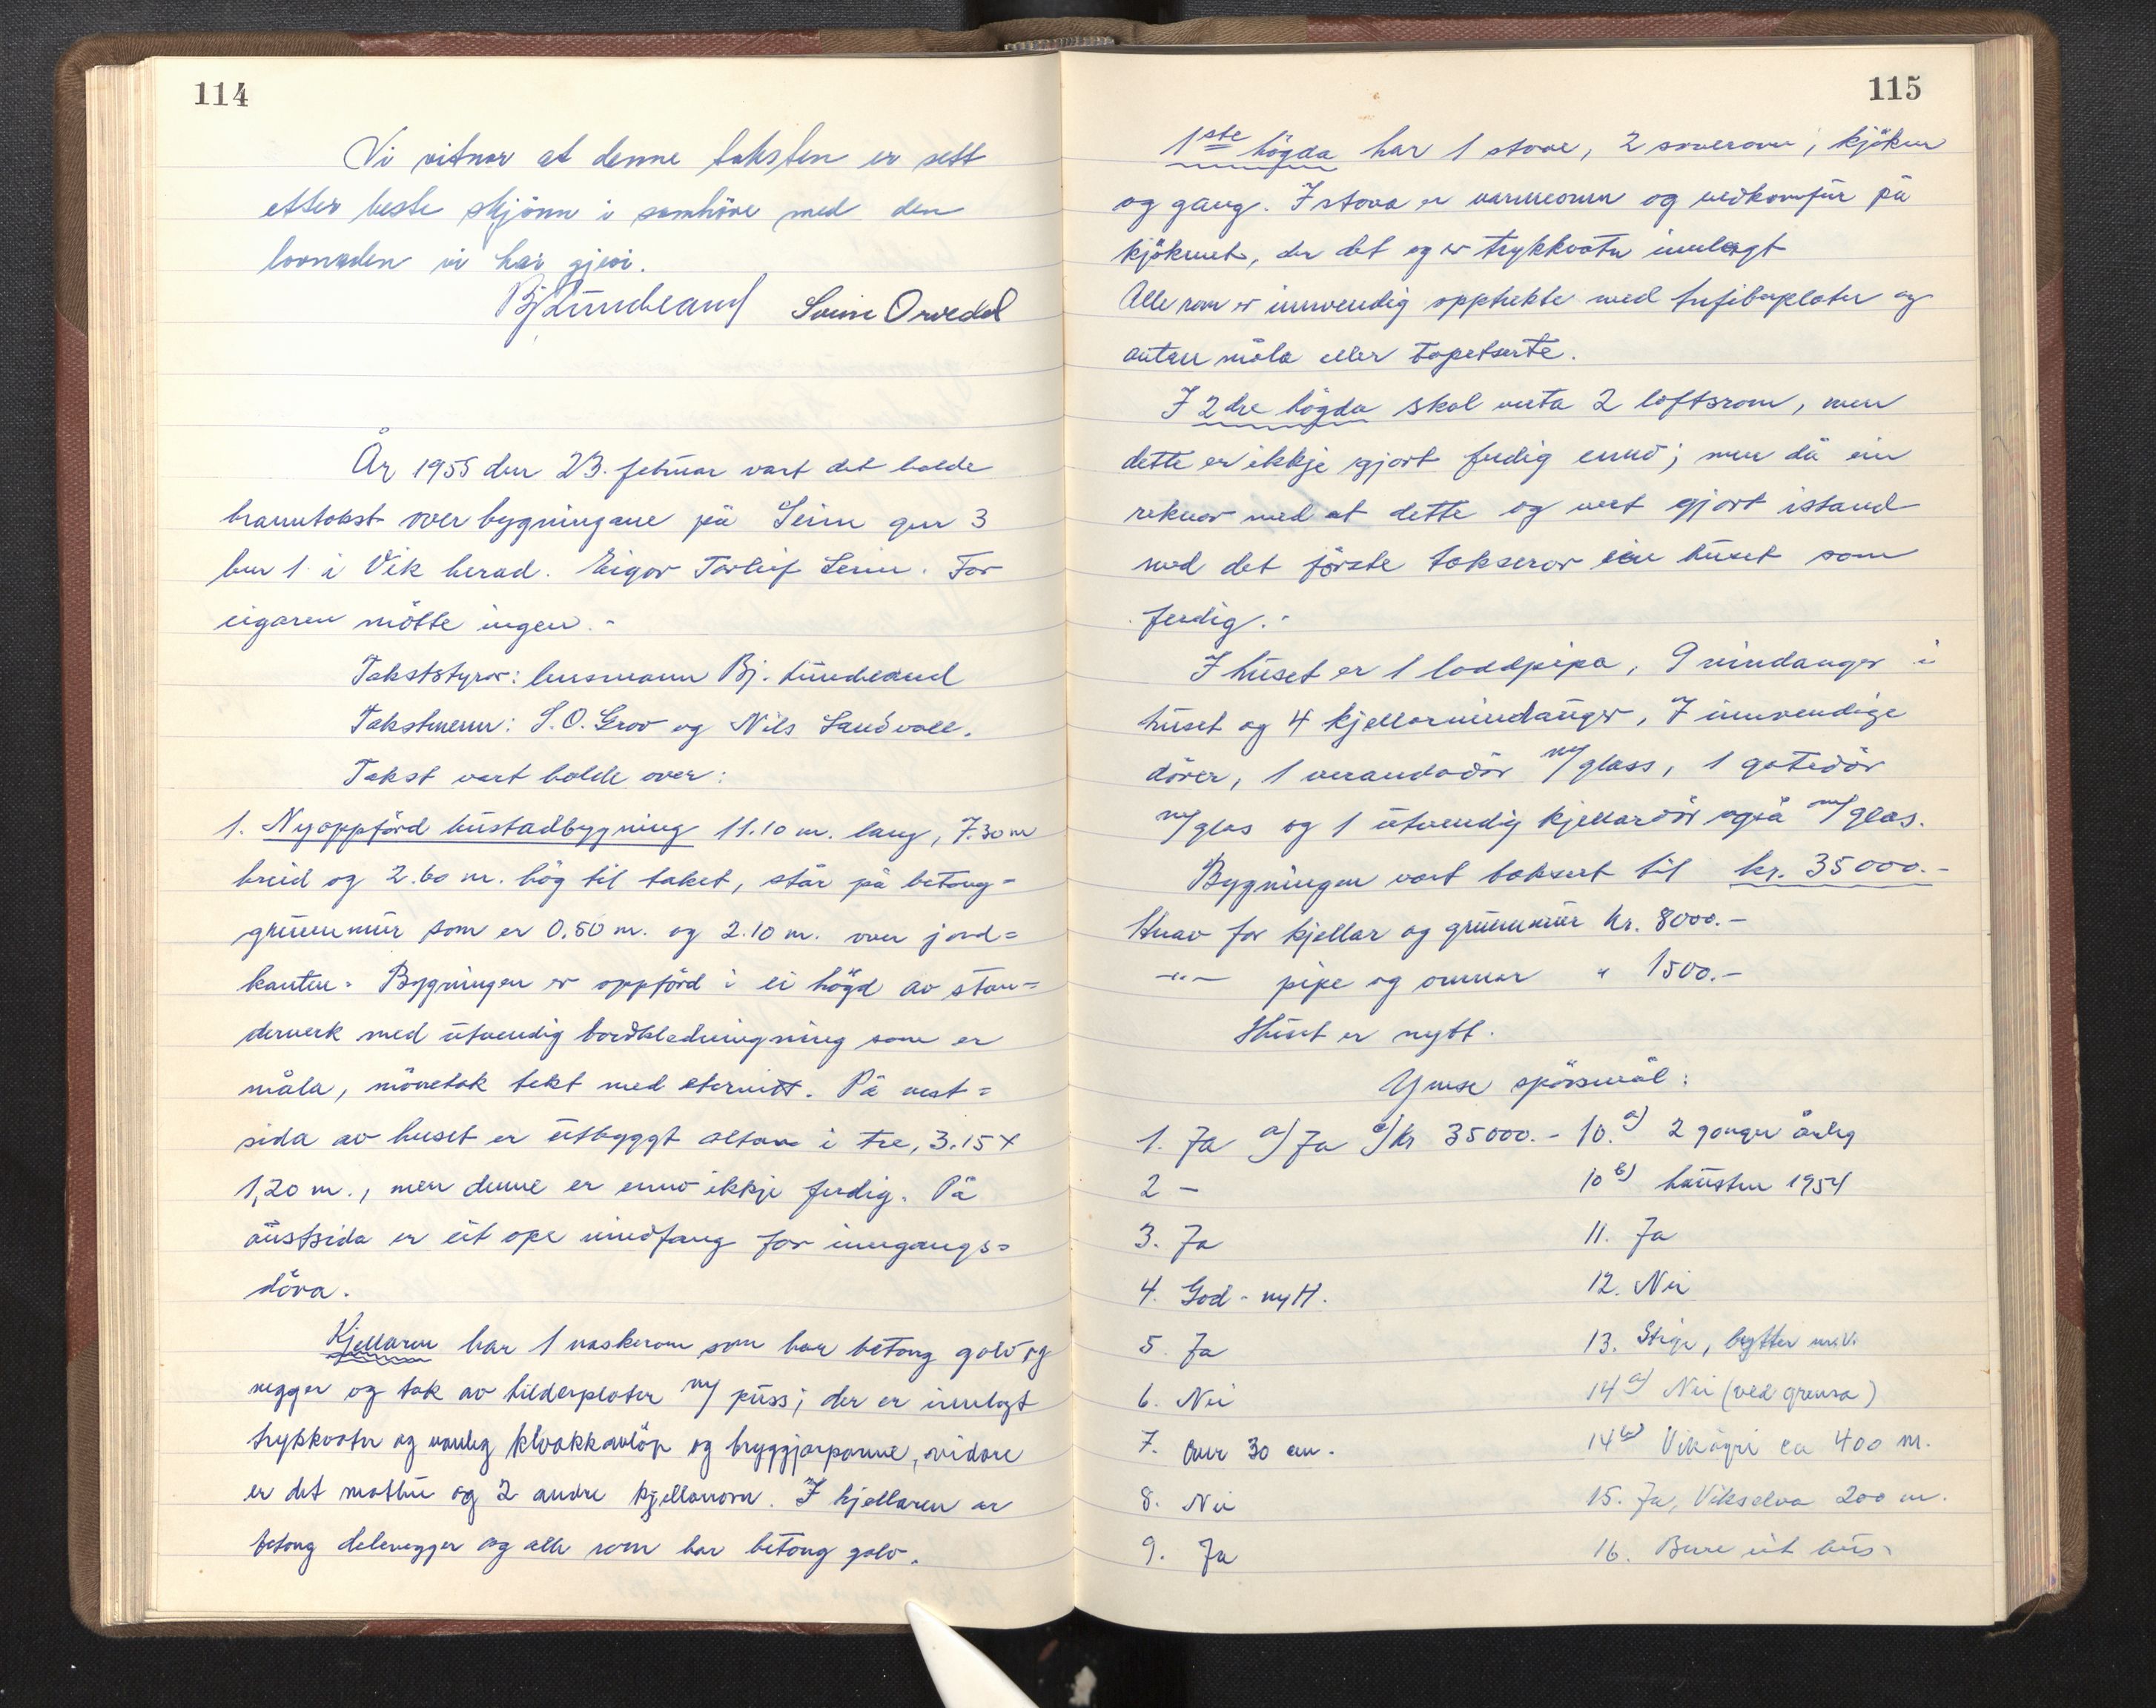 114
Vi vitnar at denne taksten er sett
etter beste skjönn i samhöve med den
lovnaden vi har gjevi.
Bj Lundeland Svein Orvedal
År 1955 den 23. februar vart det halde
branntakst over bygningane på Seim gnr 3
bnr 1 i Vik herad. Eigar Torleif Seim. For
eigaren mötte ingen.-
Takststyrar: lensmann Bj. Lundeland
Takstmenn: S.O. Grov og Nils Sandvoll.
Takst vart halde over:
1. Nyoppförd bustadbygning 11.10 m. lang, 7.30 m
breid og 2.60 m. hög til taket, står på betong-
grunnmur som er 0.50 m. og 2.10 m. over jord=
kanten. Bygningen er oppförd i ei högd av stan=
derverk med utvendig bordkledningning som er
måla, mönetak tekt med eternitt. På vest=
sida av huset er utbyggt altan i tre, 3.15 x
1,20 m., men denne er ennå ikkje ferdig. På
austsida er eit ope vindfang for inngangs=
döra.
Kjellaren har 1 vaskerom som har betong golv og
vegger og tak av hilderplater m/ puss; der er innlagt
trykkvatn og vanleg kloakkavlöp og bryggjarpanne, vidare
er det matbu og 2 andre kjellarrom. I kjellaren er
betong delevegger og alle rom har betong golv.
115
1ste högda har 1 stove, 2 soverom, kjöken
og gang. I stova er varmeomn og vedkomfur på
kjökenet, der det og er trykkvatn innlagt
Alle rom er innvendig opptrekte med trefiberplater og
anten måla eller tapetserte.
I 2dre högda skal verta 2 loftsrom, men
dette er ikkje gjort ferdig ennå; men då ein
reknar med at dette og vert gjort istand
med det förste takserar ein huset som
ferdig.-
I huset er 1 loddpipa, 9 vindauger i
huset og 4 kjellarvindauger, 7 innvendige
dörer, 1 verandadör m/glass, 1 gatedör
m/glas og 1 utvendig kjellardör også m/glas.
Bygningen vart taksert til kr. 35000.-
Herav for kjellar og grunnmur kr. 8000.-
-"- pipe og omnar " 1500.-
Huset er nytt.
Ymse spörsmål:
1. Ja a) Ja c) kr 35000.- 10. a) 2 gonger årleg
2 - 10 b) hausten 1954
3. Ja 11. Ja
4. God - nytt. 12. Nei
5. Ja 13. Stige, bytter m.v.
6. Nei 14 a) Nei (ved grensa)
7. Over 30 cm. 14 b) Vikøyri ca 400 m.
8. Nei 15. Ja, Vikselva 200 m.
9. Ja 16. Bere eit hus.